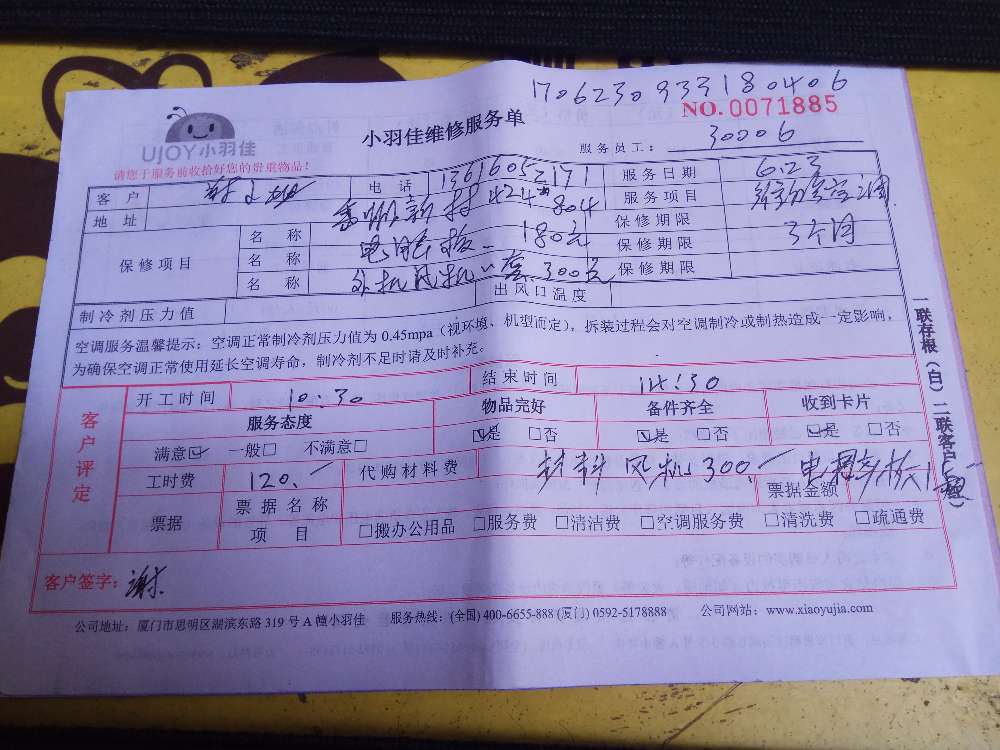 1706230933180406
NO.0071885
小羽佳维修服务单
UJOY小羽佳
服务员工： 30006
请您于服务前收拾好您的贵重物品！
客 户 电 话 13616052171 服务日期 6.23
地 址 新村424# 804 服务项目
保修项目 名 称 180元 保修期限 3个月
名 称 外机风机一套300元 保修期限
名 称 保修期限
制冷剂压力值 出风口温度
空调服务温馨提示：空调正常制冷剂压力值为 0.45mpa（视环境、机型而定），拆装过程会对空调制冷或制热造成一定影响，
为确保空调正常使用延长空调寿命，制冷剂不足时请及时补充。
客户评定
开工时间 10:30 结束时间 14:30
服务态度 物品完好 备件齐全 收到卡片
满意☑ 一般□ 不满意□ ☑是 □否 ☑是 □否 ☑是 □否
工时费 120.- 代购材料费 材料 风机300.-
票据 票据名称 票据金额
项 目 □搬办公用品 □服务费 □清洁费 □空调服务费 □清洗费 □疏通费
客户签字：谢
公司地址：厦门市思明区湖滨东路 319 号 A 幢小羽佳 服务热线：(全国) 400-6655-888 (厦门) 0592-5178888 公司网站：www.xiaoyujia.com
一联存根（白）二联客户